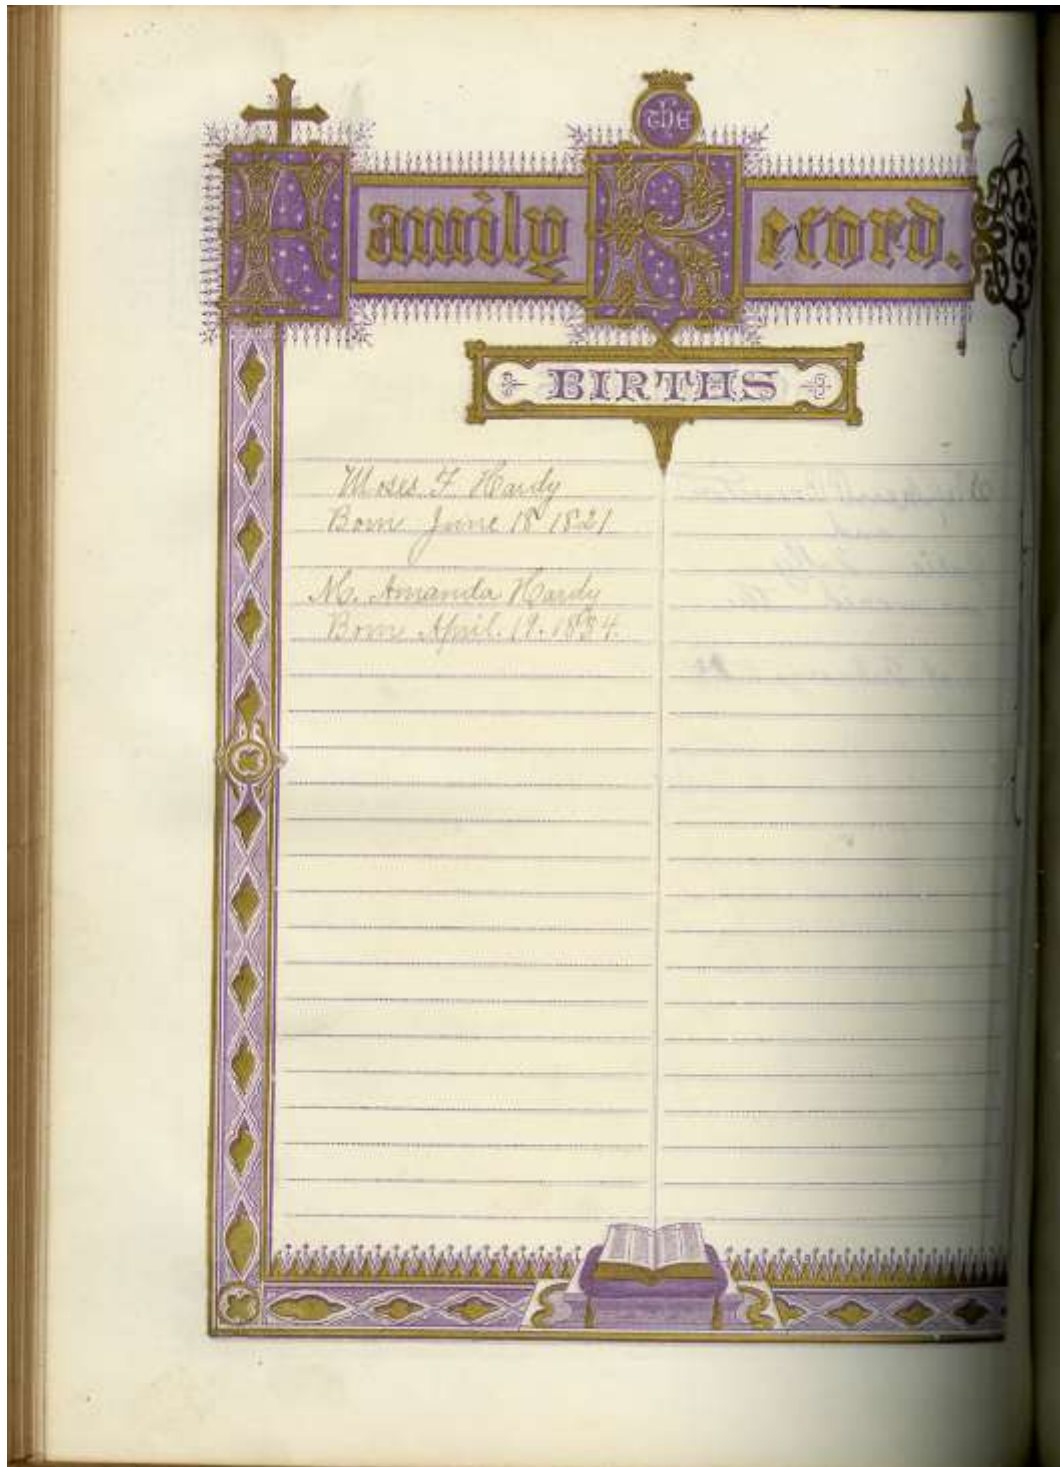 the
Family Record.
BIRTHS
Moses F. Hardy
Born June 18 1821
M. Amanda Hardy
Born April. 19. 1834.
and